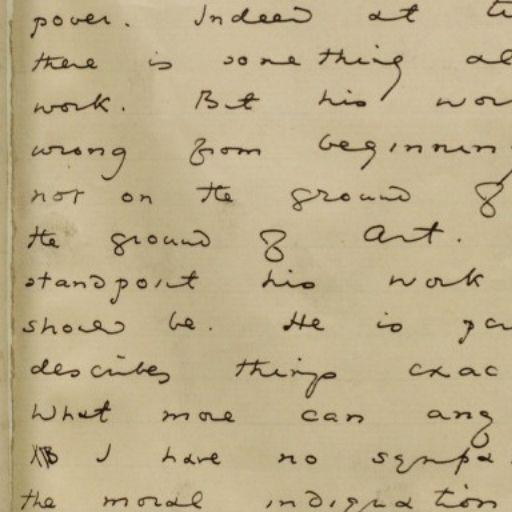 power. Indeed at
there is something al
work. But his wor
wrong from beginnin
not on the ground of
the ground of Art.
standpoint his work
should be. He is
describes things exac
What more can any
I have no sympa
the moral indignation